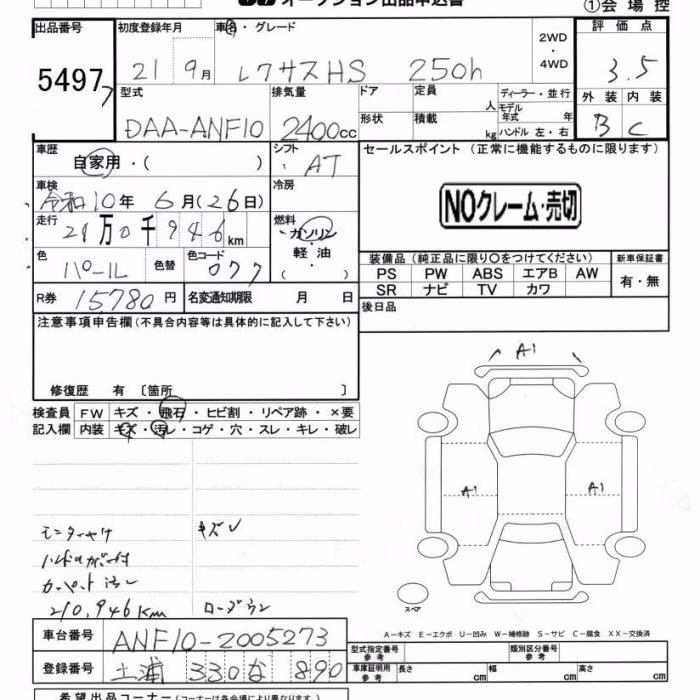 オークション出品申込書
①会場控
出品番号
5497
初度登録年月
21 9月
車名・グレード
レクサスHS 250h
2WD・4WD
評価点
3.5
外装 内装
B C
型式
DAA-ANF10
排気量
2400cc
ドア
形状
定員 人
積載 kg
ディーラー・並行
モデル年式 年
ハンドル 左・右
車歴
自家用・( )
シフト
AT
セールスポイント (正常に機能するものに限ります)
NOクレーム・売切
車検
令和10年 6月(26日)
冷房
走行
21万0千946km
燃料
ガソリン・軽油・( )
色
パール
色替
色コード
077
装備品(純正品に限り○をつけてください)
PS PW ABS エアB AW
SR ナビ TV カワ
新車保証書
有・無
R券 15780円
名変通知期限 月 日
後日品
注意事項申告欄(不具合内容等は具体的に記入して下さい)
修復歴 有 〔箇所 〕
検査員記入欄
FW キズ・飛石・ヒビ割・リペア跡・×要
内装 キズ・汚レ・コゲ・穴・スレ・キレ・破レ
A1
A1 A1
モニターヤケ
キズV
カーペット汚レ
210,946Km
スペア
A−キズ E−エクボ U−凹み W−補修跡 S−サビ C−腐食 XX−交換済
車台番号 ANF10-2005273
登録番号 土浦 330 な 890
型式指定番号 参考
類別区分番号 参考
車庫証明用 参考
長さ cm 幅 cm 高さ cm
希望出品コーナー(コーナーは各会場により異なります。)